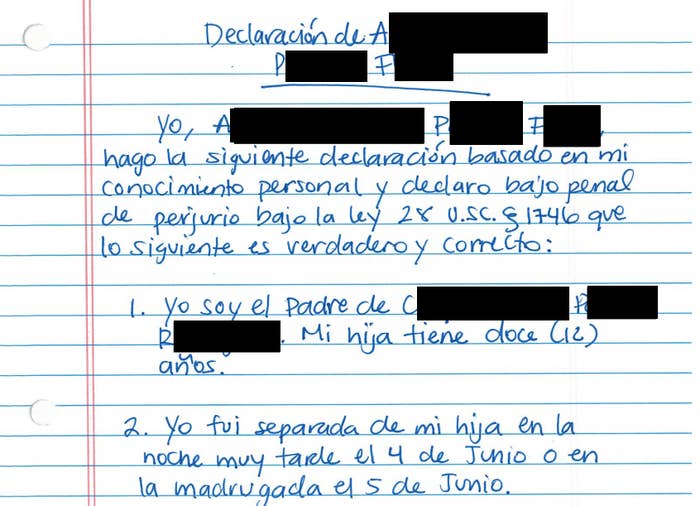 Declaración de A
P F
Yo, A P F,
hago la siguiente declaración basado en mi
conocimiento personal y declaro bajo penal
de perjurio bajo la ley 28 U.S.C. § 1746 que
lo siguiente es verdadero y correcto:
1. Yo soy el Padre de C P
R. Mi hija tiene doce (12)
años.
2. Yo fui separada de mi hija en la
noche muy tarde el 4 de Junio o en
la madrugada el 5 de Junio.